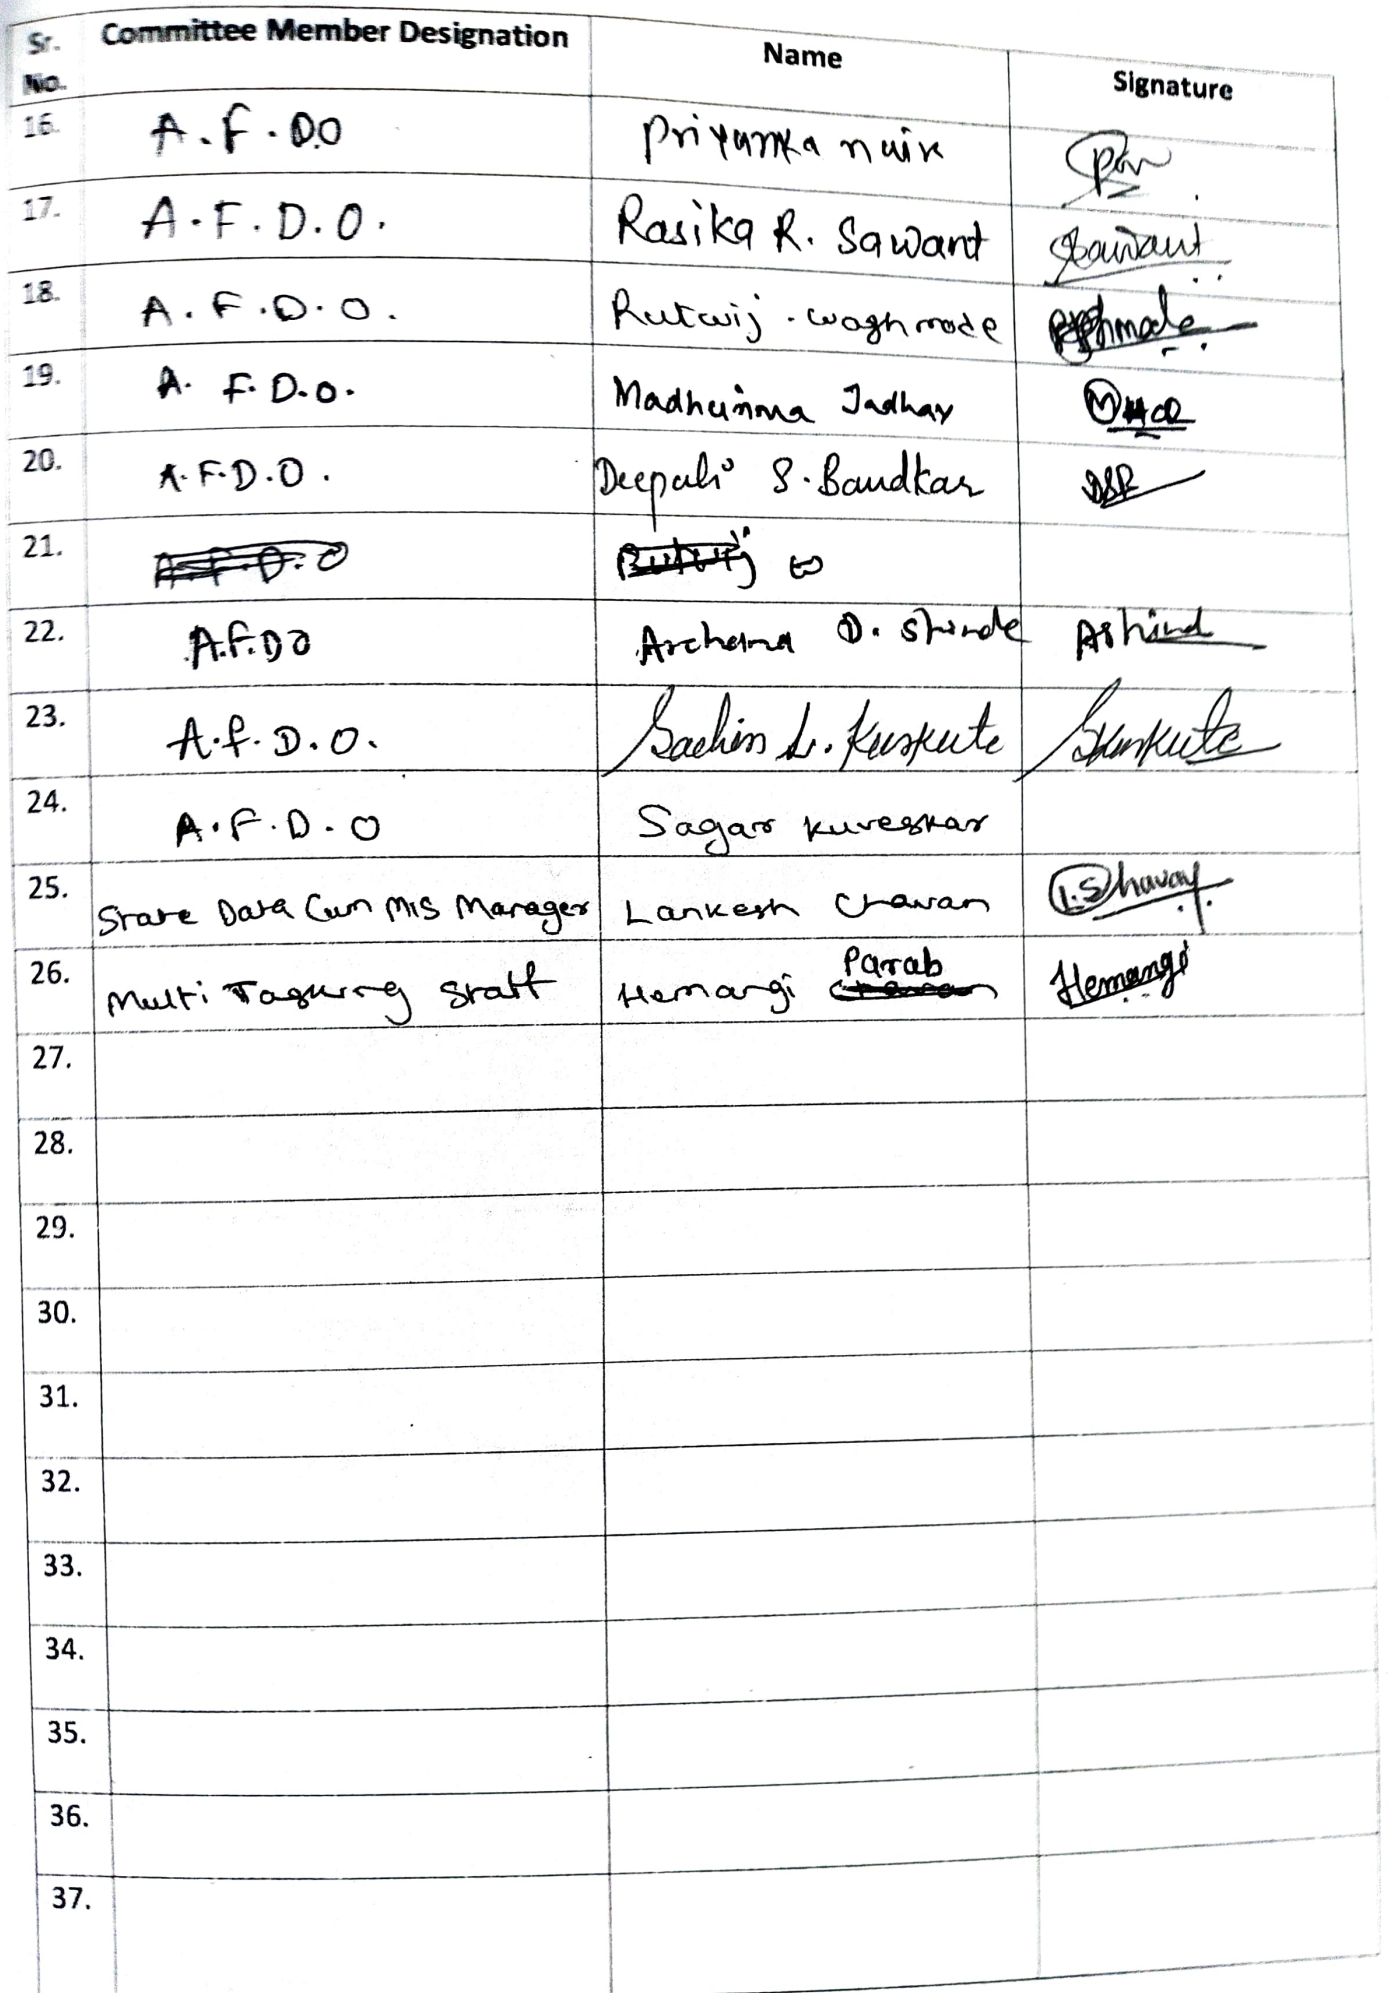 Sr. No. Committee Member Designation Name Signature
16. A.F.D.O Priyanka naik
17. A.F.D.O. Rasika R. Sawant Sawant
18. A.F.D.O. Rutwij . waghmode
19. A.F.D.O. Madhurima Jadhav
20. A.F.D.O. Deepali S. Bandkar DSB
21. A.F.D.O Rutwij w
22. A.F.DO Archana D. Shinde AShind
23. A.F.D.O. Sachin L. Kuskute Skuskute
24. A.F.D.O Sagar Kuveskar
25. State Data Cum MIS Manager Lankesh Chavan
26. Multi Tasking Staff Hemangi Chavan Parab Hemangi
27.
28.
29.
30.
31.
32.
33.
34.
35.
36.
37.